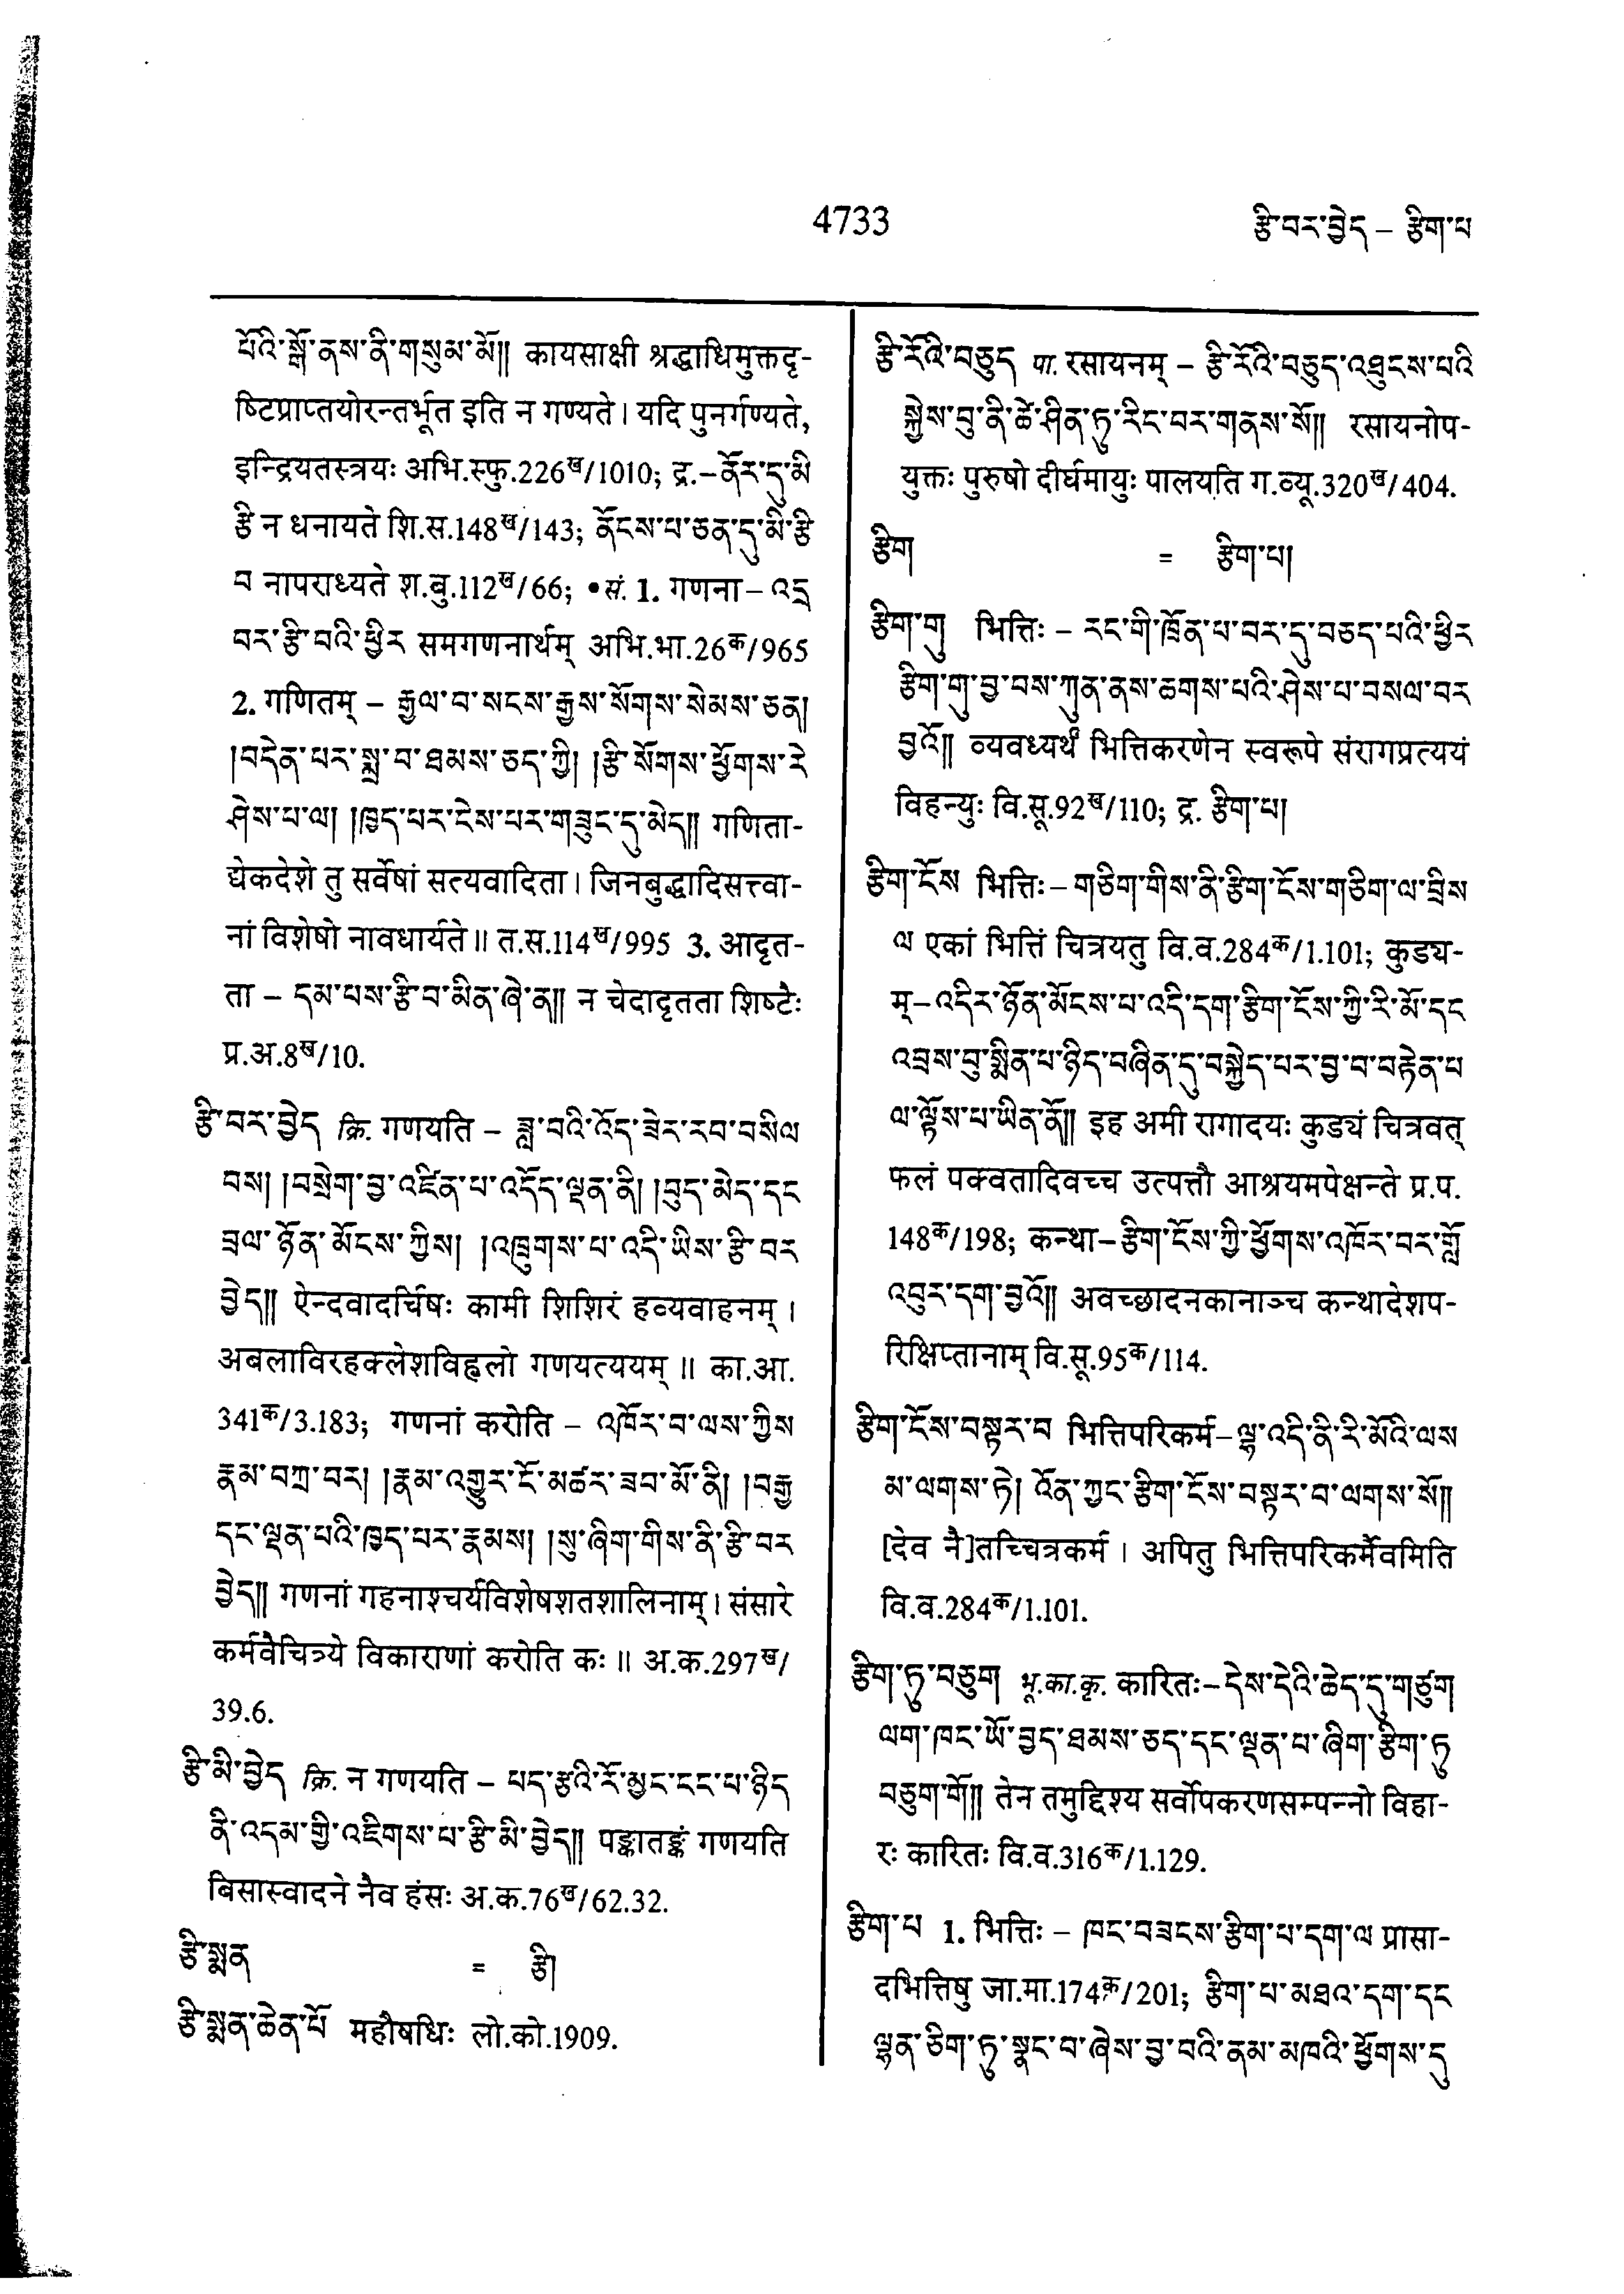 4733
རྩི་བར་བྱེད – རྩིག་པ
པོའི་སྒོ་ནས་ནི་གསུམ་མོ།། कायसाक्षी श्रद्धाधिमुक्तदृ-
ष्टिप्राप्तयोरन्तर्भूत इति न गण्यते। यदि पुनर्गण्यते,
इन्द्रियतस्त्रयः अभि.स्फु.226ख/1010; द्र.–ནོར་དུ་མི
རྩི न धनायते शि.स.148ख/143; ནོངས་པ་ཅན་དུ་མི་རྩི
བ नापराध्यते श.बु.112ख/66; •सं. 1. गणना – འདྲ
བར་རྩི་བའི་ཕྱིར समगणनार्थम् अभि.भा.26क/965
2. गणितम् – རྒྱལ་བ་སངས་རྒྱས་སོགས་སེམས་ཅན།
།བདེན་པར་སྨྲ་བ་ཐམས་ཅད་ཀྱི། །རྩི་སོགས་ཕྱོགས་རེ
ཤེས་པ་ལ། །ཁྱད་པར་ངེས་པར་གཟུང་དུ་མེད།། गणिता-
द्येकदेशे तु सर्वेषां सत्यवादिता। जिनबुद्धादिसत्त्वा-
नां विशेषो नावधार्यते॥ त.स.114ख/995 3. आदृत-
ता – དམ་པས་རྩི་བ་མིན་ཞེ་ན།། न चेदादृतता शिष्टैः
प्र.अ.8ख/10.
རྩི་བར་བྱེད क्रि. गणयति – ཟླ་བའི་འོད་ཟེར་རབ་བསིལ
བས། །བསྲེག་བྱ་འཛིན་པ་འདོད་ལྡན་ནི། །བུད་མེད་དང
བྲལ་ཉོན་མོངས་ཀྱིས། །འཁྲུགས་པ་འདི་ཡིས་རྩི་བར
བྱེད།། ऐन्दवादर्चिषः कामी शिशिरं हव्यवाहनम्।
अबलाविरहक्लेशविह्वलो गणयत्ययम्॥ का.आ.
341क/3.183; गणनां करोति – འཁོར་བ་ལས་ཀྱིས
རྣམ་བཀྲ་བར། །རྣམ་འགྱུར་ངོ་མཚར་ཟབ་མོ་ནི། །བརྒྱ
དང་ལྡན་པའི་ཁྱད་པར་རྣམས། །སུ་ཞིག་གིས་ནི་རྩི་བར
བྱེད།། गणनां गहनाश्चर्यविशेषशतशालिनाम्। संसारे
कर्मवैचित्र्ये विकाराणां करोति कः॥ अ.क.297ख/
39.6.
རྩི་མི་བྱེད क्रि. न गणयति – པད་རྩའི་རོ་མྱང་ངང་པ་ཉིད
ནི་འདམ་གྱི་འཇིགས་པ་རྩི་མི་བྱེད།། पङ्कातङ्कं गणयति
बिसास्वादने नैव हंसः अ.क.76ख/62.32.
རྩི་སྨན = རྩི།
རྩི་སྨན་ཆེན་པོ महौषधिः लो.को.1909.
རྩི་རོའི་བཅུད पा. रसायनम् – རྩི་རོའི་བཅུད་འཐུངས་པའི
སྐྱེས་བུ་ནི་ཚེ་ཤིན་ཏུ་རིང་བར་གནས་སོ།། रसायनोप-
युक्तः पुरुषो दीर्घमायुः पालयति ग.व्यू.320ख/404.
རྩིག = རྩིག་པ།
རྩིག་གུ भित्तिः – རང་གི་ཁྲོན་པ་བར་དུ་བཅད་པའི་ཕྱིར
རྩིག་གུ་བྱ་བས་ཀུན་ནས་ཆགས་པའི་ཤེས་པ་བསལ་བར
བྱའོ།། व्यवध्यर्थं भित्तिकरणेन स्वरूपे संरागप्रत्ययं
विहन्युः वि.सू.92ख/110; द्र. རྩིག་པ།
རྩིག་ངོས भित्तिः – གཅིག་གིས་ནི་རྩིག་ངོས་གཅིག་ལ་བྲིས
ལ एकां भित्तिं चित्रयतु वि.व.284क/1.101; कुड्य-
म् – འདིར་ཉོན་མོངས་པ་འདི་དག་རྩིག་ངོས་ཀྱི་རི་མོ་དང
འབྲས་བུ་སྨིན་པ་ཉིད་བཞིན་དུ་བསྐྱེད་པར་བྱ་བ་བརྟེན་པ
ལ་ལྟོས་པ་ཡིན་ནོ།། इह अमी रागादयः कुड्यं चित्रवत्
फलं पक्वतादिवच्च उत्पत्तौ आश्रयमपेक्षन्ते प्र.प.
148क/198; कन्था – རྩིག་ངོས་ཀྱི་ཕྱོགས་འཁོར་བར་གློ
འབུར་དག་བྱའོ།། अवच्छादनकानाञ्च कन्थादेशप-
रिक्षिप्तानाम् वि.सू.95क/114.
རྩིག་ངོས་བསྟར་བ भित्तिपरिकर्म – ལྷ་འདི་ནི་རི་མོའི་ལས
མ་ལགས་ཏེ། འོན་ཀྱང་རྩིག་ངོས་བསྟར་བ་ལགས་སོ།།
[देव नै]तच्चित्रकर्म। अपितु भित्तिपरिकर्मैवमिति
वि.व.284क/1.101.
རྩིག་ཏུ་བཅུག भू.का.कृ. कारितः – དེས་དེའི་ཆེད་དུ་གཙུག
ལག་ཁང་ཡོ་བྱད་ཐམས་ཅད་དང་ལྡན་པ་ཞིག་རྩིག་ཏུ
བཅུག་གོ།། तेन तमुद्दिश्य सर्वोपकरणसम्पन्नो विहा-
रः कारितः वि.व.316क/1.129.
རྩིག་པ 1. भित्तिः – ཁང་བཟངས་རྩིག་པ་དག་ལ प्रासा-
दभित्तिषु जा.मा.174क/201; རྩིག་པ་མཐའ་དག་དང
ལྷན་ཅིག་ཏུ་སྣང་བ་ཞེས་བྱ་བའི་ནམ་མཁའི་ཕྱོགས་དུ